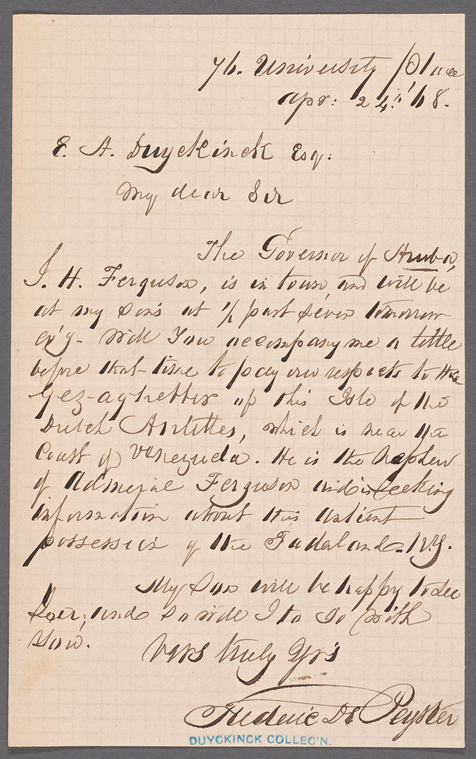 76. University Place
Apr: 24th '68.
E. A. Duyckinck Esq:
My dear Sir
The Governor of Aruba,
J. H. Ferguson, is in town and will be
at my Son's at ½ past Seven tomorrow
ev'g. Will You accompany me a little
before that time to pay our respects to the
of this Isle of the
Dutch Antilles, which is near the
Coast of Venezuela. He is the Nephew
of Admiral Ferguson and is seeking
information about this antient
possession of the Fadaland. N.Y.
My Son will be happy to see
You, and so will I to go with
You.
Very truly Yrs
Frederic De Peyster
DUYCKINCK COLLEC'N.